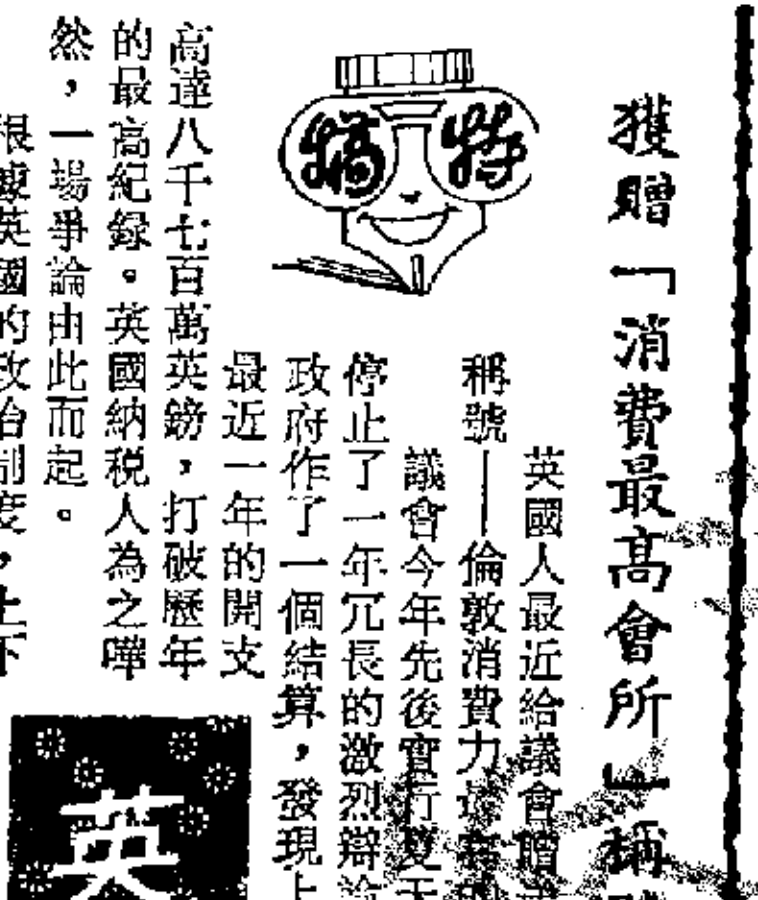 獲贈「消費最高會所」稱
特稿
英國人最近給議會贈
稱號——倫敦消費力最
議會今年先後實行夏天
停止了一年冗長的激烈辯論
政府作了一個結算，發現上
最近一年的開支
高達八千七百萬英鎊，打破歷年
的最高紀錄。英國納稅人為之嘩
然，一場爭論由此而起。
根據英國的政治制度，上下
英